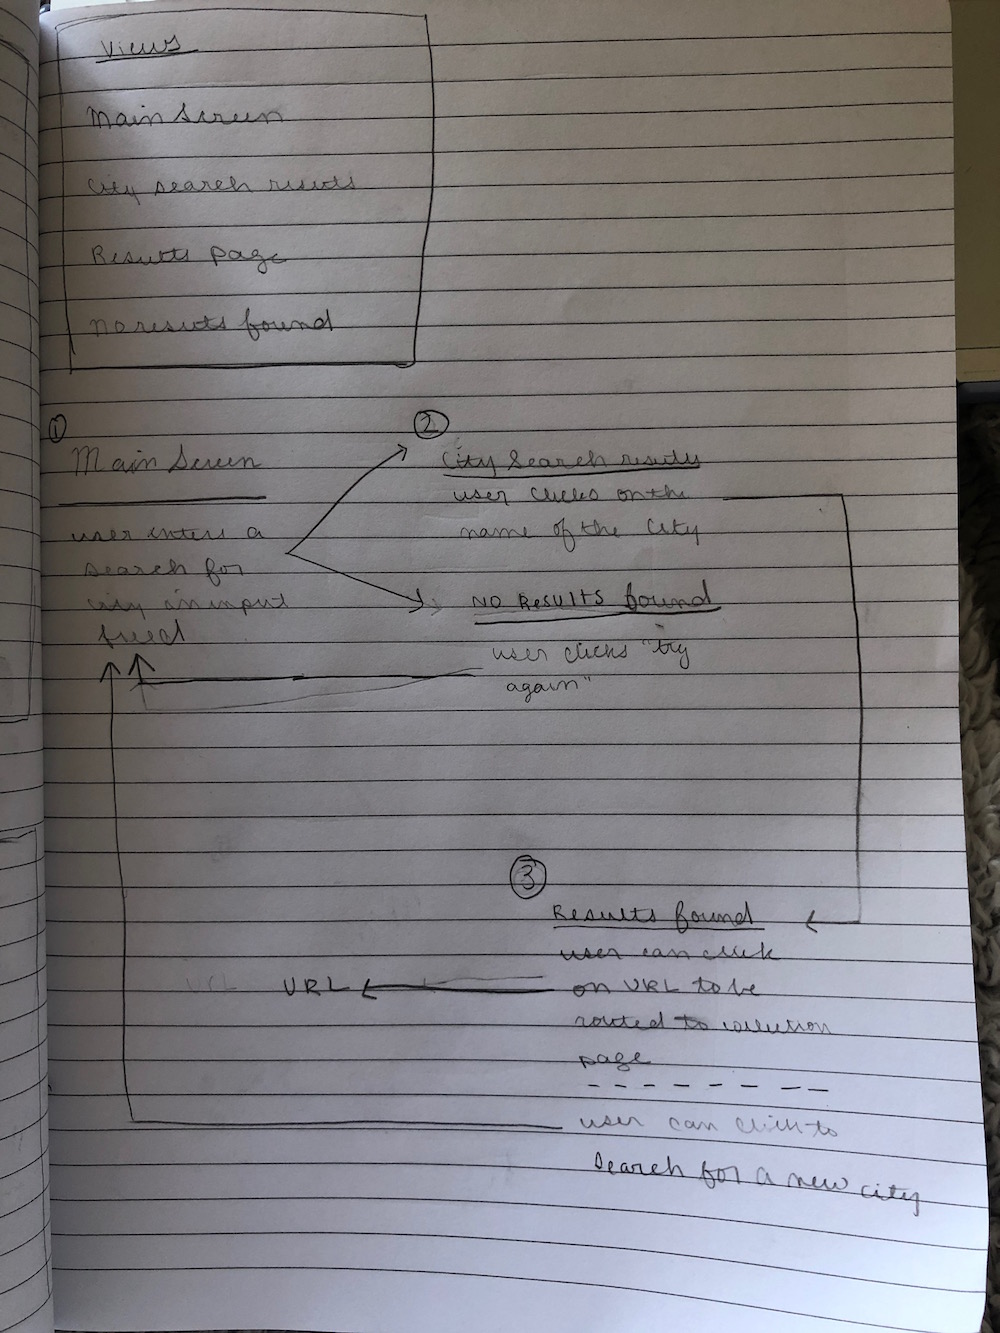 Views
Main Screen
City search results
Results page
No results found
1
Main Screen
user enters a
search for
city in input
field
2
City Search results
user clicks on the
name of the City
No Results found
user clicks "try
again"
3
Results found
user can click
on URL to be
routed to collection
page
URL
URL
user can click to
Search for a new city